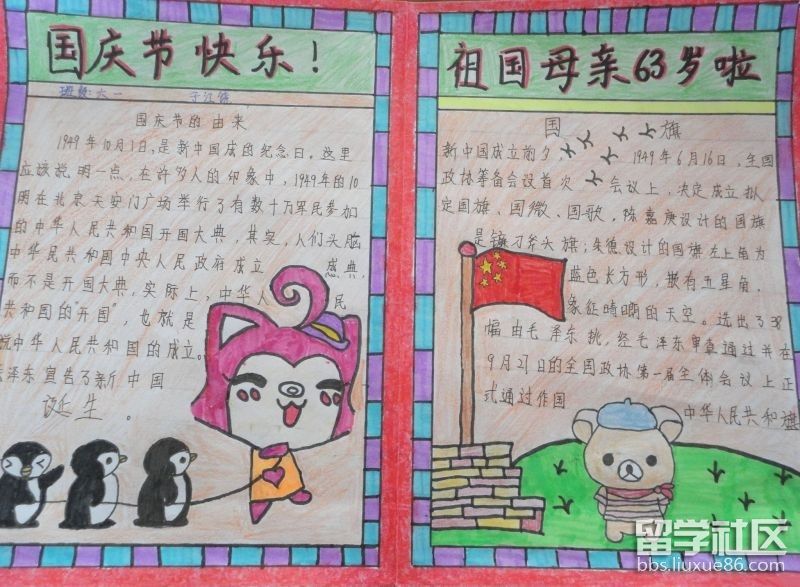 国庆节快乐！
班级:六一
国庆节的由来
1949年10月1日,是新中国成的纪念日。这里
应该说明一点,在许多人的印象中,1949年的10
明在北京天安门广场举行了有数十万军民参加
的中华人民共和国开国大典,其实,人们头脑
中华民共和国中央人民政府成立 感典,
而不是开国大典,实际上,中华人 民
共和国的"开国",也就是
中华人民共和国的成立。
泽东宣告了新中国
诞生。
祖国母亲63岁啦
国旗
新中国成立前夕, 1949年6月16日,全国
政协筹备会设首次会议上,决定成立拟
定国旗、国徽、国歌,陈嘉庚设计的国旗
是镰刀斧头旗;朱德设计的国旗左上角为
蓝色长方形,嵌有五星角,
象征晴朗的天空。选出了38
幅由毛泽东挑,经毛泽东审查通过并在
9月21日的全国政协第一届全体会议上正
式通过作国
中华人民共和旗
留学社区
bbs.liuxue86.com